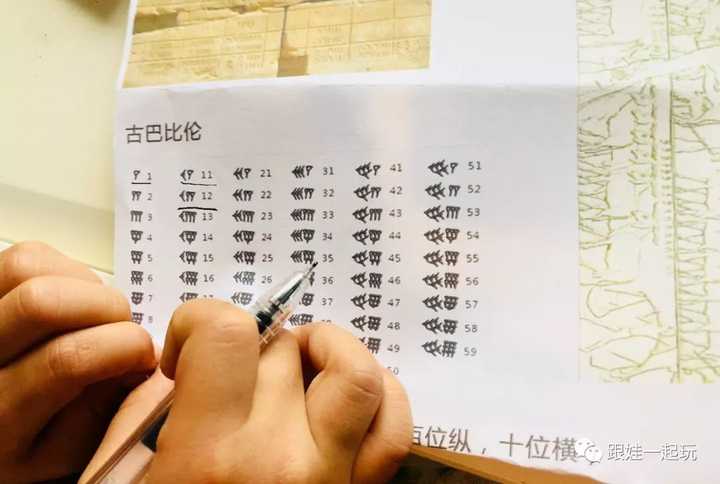 古巴比伦
1 11 21 31 41 51
2 12 22 32 42 52
3 13 23 33 43 53
4 14 24 34 44 54
5 15 25 35 45 55
6 16 26 36 46 56
7 37 47 57
8 48 58
49 59
位纵，十位横
跟娃一起玩